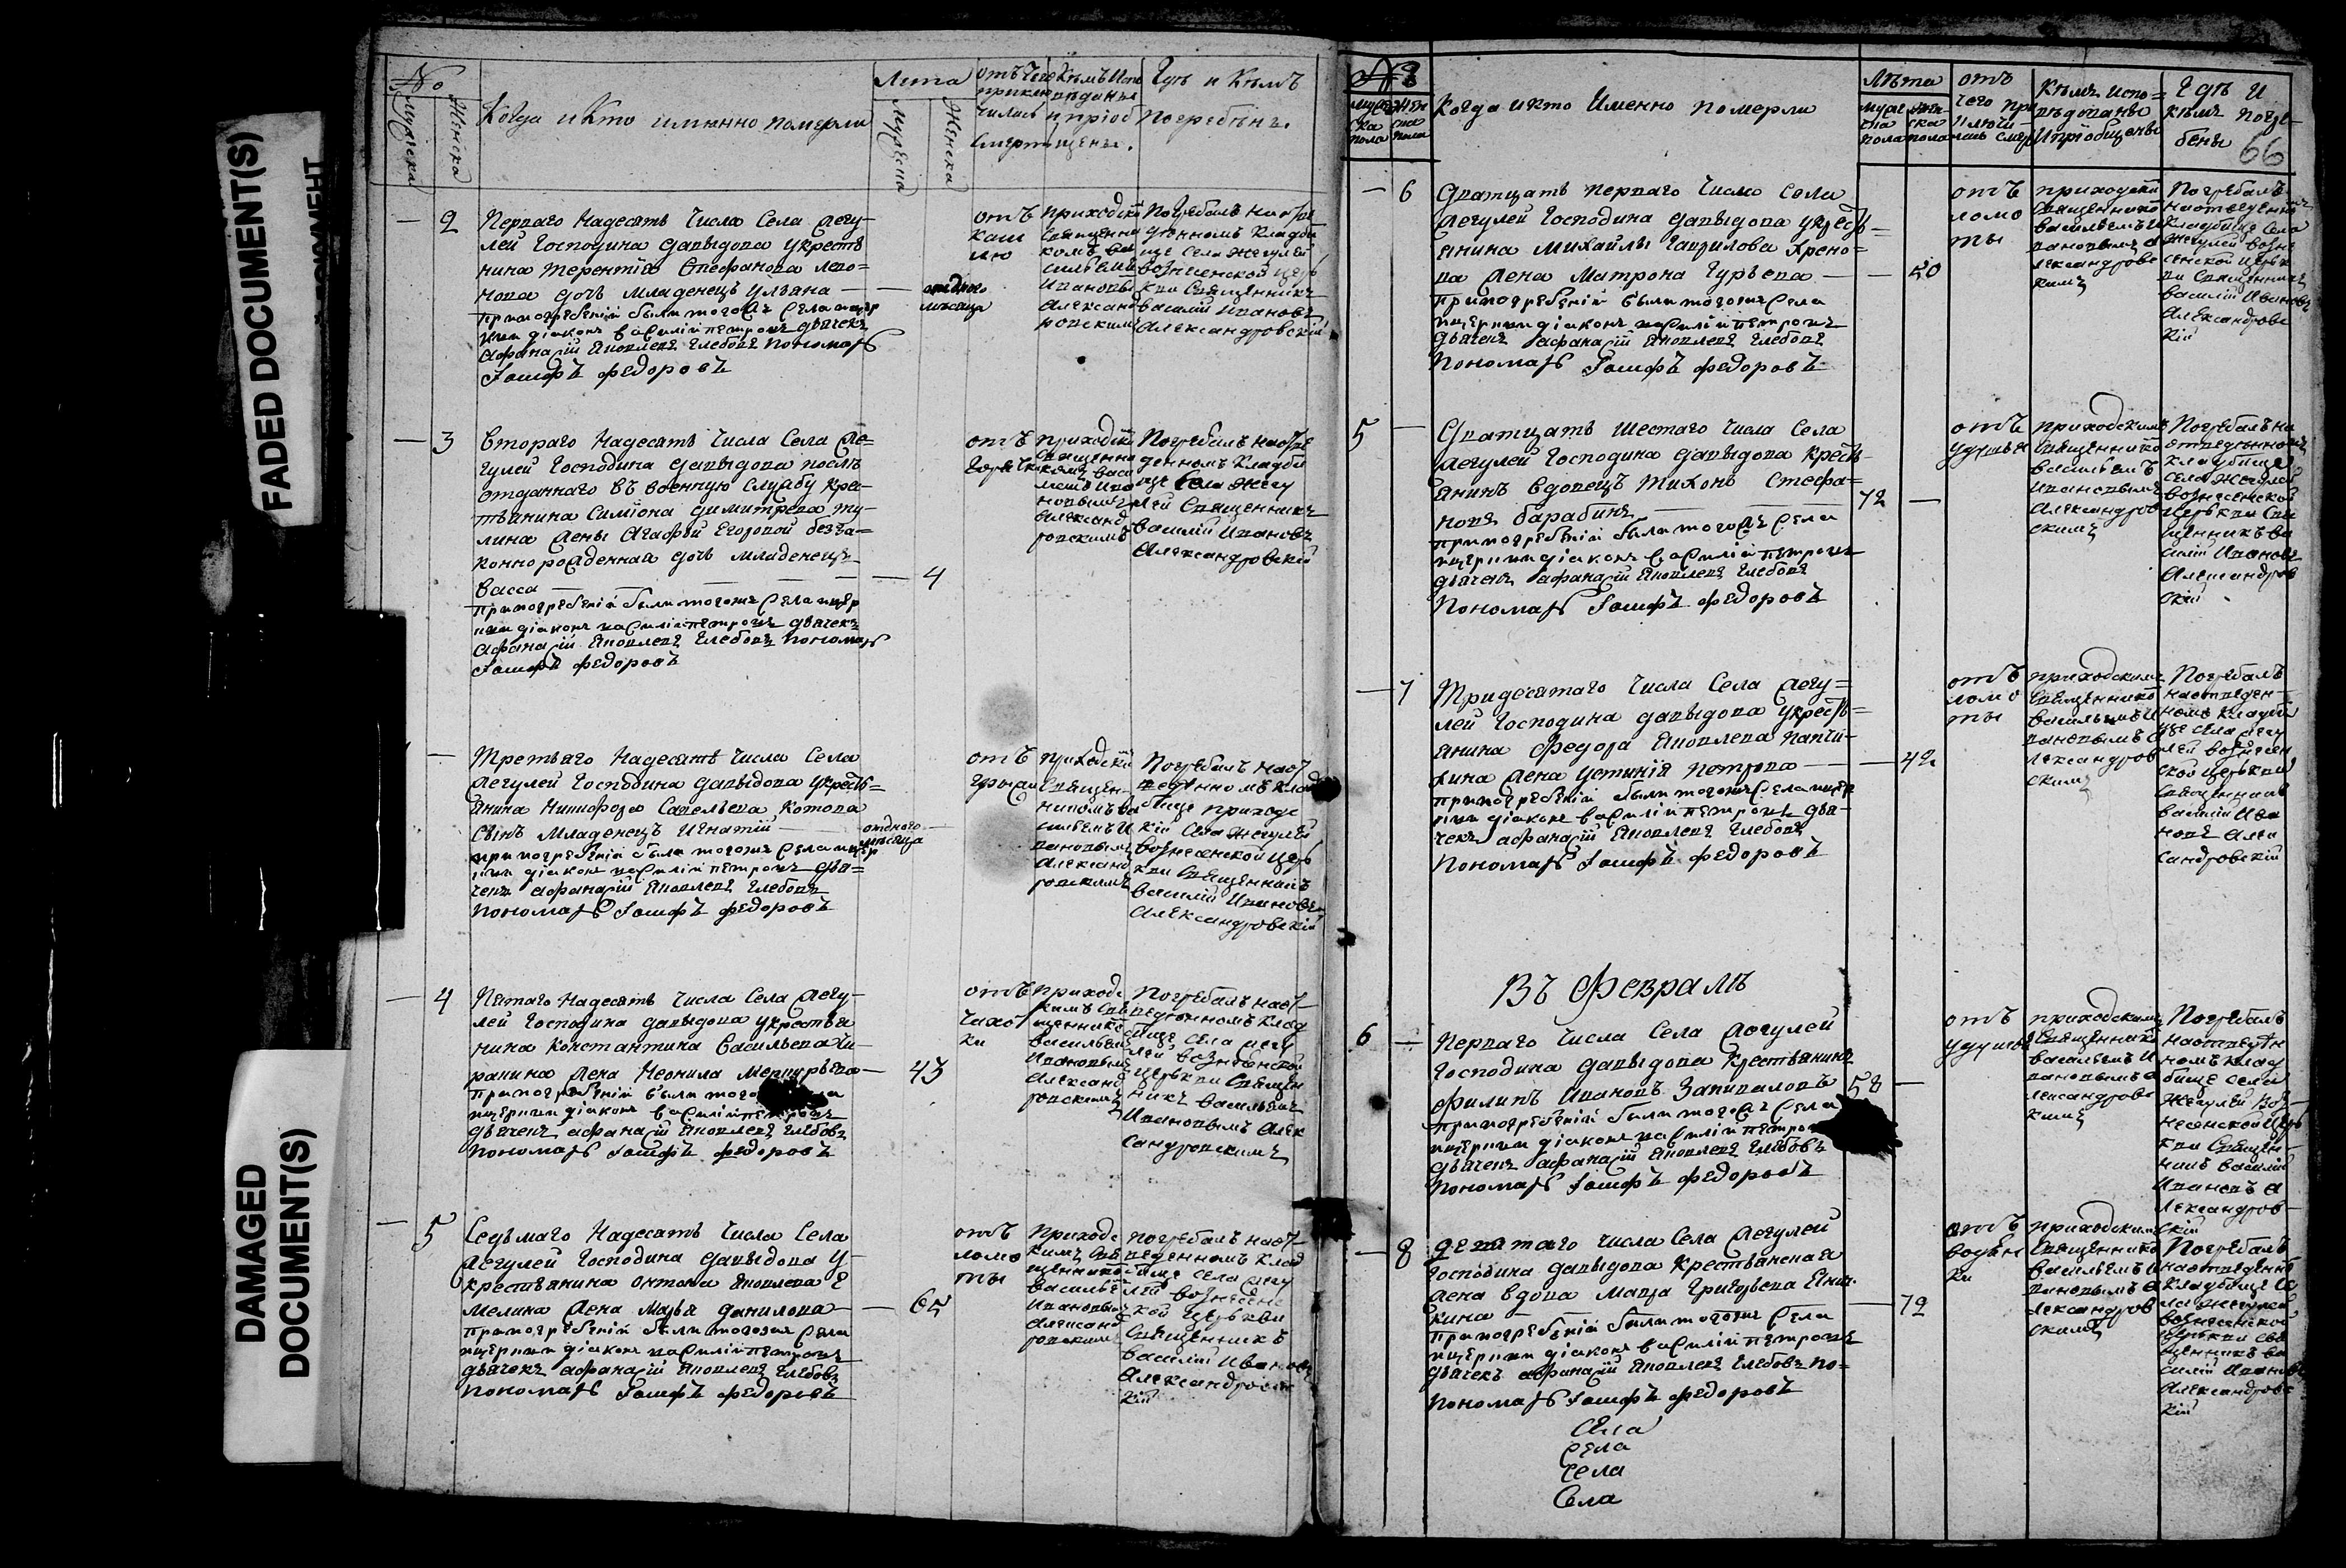 FADED DOCUMENT(S)
DAMAGED
DOCUMENT(S)
№
Мужеска
Женска
Когда и Кто имянно померли
Лета
Мужеска
Женска
отъ чего
приклю
чилась
Смерть
Кѣмъ Испо
вѣданы
и пріоб
щены.
Гдѣ и Кѣмъ
Погребенъ.
— 2
Перваго Надесять Числа Села Жегу-
лей Господина Давыдова укрестья
нина Терентія Стефанова лео=
нова дочь младенецъ Ульяна —
при погребеніи были тогожъ Села пщер
ники діаконъ Василій Петровъ дьячекъ
Афанасій Яковлевъ Глебовъ пономарь
Іосифъ федоровъ
одного
месяца
отъ
каш
лю
приходски
Священни
комъ Ва
сильемъ
Ивановы
Александ
ровскимъ
Погребалъ на отве
денномъ Кладби
ще Села Жегулей
Вознесенской Церь
кви Священникъ
Василій Ивановъ
Александровскій
— 3
Втораго Надесять Числа Села Же=
гулей Господина Давыдова послѣ
отданнаго въ военную службу кре-
тьянина Симіона Димитрева ту-
лина жены Агафьи Егоровой безза-
коннорожденная дочь младенецъ
Васса — — —
при погребеніи были тогожъ Села пщер
ники діаконъ Василій Петровъ дьячекъ
Афанасій Яковлевъ Глебовъ пономарь
Іосифъ федоровъ
— 4
отъ
Горячки
приходски
Священни
комъ Васи
льемъ Ива
новымъ
Александ
ровскимъ
Погребалъ на отве
денномъ Кладби
ще Села Жегу
лей Священникъ
Василій Ивановъ
Александровскій
—
Третьяго Надесять Числа Села
Жегулей Господина Давыдова укресть=
янина Никифора Савельева Котова
Сынъ младенецъ Игнатій —
при погребеніи были тогожъ Села пщер
ники діаконъ Василій Петровъ дья=
чекъ Афанасій Яковлевъ Глебовъ
пономарь Іосифъ федоровъ
одного
месяца
отъ
грыжи
приходски
Священ-
никомъ Ва
сильемъ И
вановымъ
Александ
ровскимъ
Погребалъ на от
веденномъ Клад
бище приходс
кій Села Жегулей
Вознесенской Церь
кви Священникъ
Василій Ивановъ
Александровскій
— 4
Пятаго Надесять Числа Села Жегу-
лей Господина Давыдова укрестья
нина Константина Васильева
жена Неонила Меркурьева —
при погребеніи были того
пщерники діаконъ Василій Петровъ
дьячекъ Афанасій Яковлевъ Глебовъ
пономарь Іосифъ федоровъ
43
отъ
Чахот
ки
приходс
кимъ Свя
щеннико
Васильемъ
Ивановымъ
Александ
ровскимъ
Погребалъ на от
веденномъ Клад
бище Села Жегу
лей Вознесенской
Церькви Священ
никъ Васильемъ
Ивановымъ Алек
сандровскимъ
— 5
Седьмаго Надесять Числа Села
Жегулей Господина Давыдова у
крестьянина Антона Яковлева Е
мелина жена Марья Данилова —
при погребеніи были тогожъ Села
пщерники діаконъ Василій Петровъ
дьячекъ Афанасій Яковлевъ Глебовъ
пономарь Іосифъ федоровъ
65
отъ
ломо
ты
приходс
кимъ Свя
щеннико
Василье
Ивановы
Александ
ровскимъ
погребалъ на от
веденномъ Клад
бище Села Жегу
лей Вознесенс
кой Церькви
Священникъ
Василій Ивановъ
Александровс
кій
№
мужес
ска
пола
жен
ска
пола
Когда и кто Именно померли
Лѣта
мужес
ска
пола
жен
ска
пола
отъ
чего при
ключи
лась смер
Кѣмъ Испо=
вѣдованы
И приобщены
Гдѣ И
Кѣмъ погре-
бены
66
— 6
Дватцать перваго Числа Села
Жегулей Господина Давыдова укресть=
янина Михайлы Гаврилова Хрено=
ва жена Матрона Гурьева —
при погребеніи были тогожъ Села
пщерники діаконъ Василій Петровъ
дьячекъ Афанасій Яковлевъ Глебовъ
пономарь Іосифъ федоровъ
— 50
отъ
ломо
ты
приходски
Священнико
Васильемъ И
вановымъ А
лександровс
кимъ
Погребалъ
на отведенно
Кладбище Села
Жегулей Возне
сенской Церьк
ви Священникъ
Василій Ивановъ
Александровс
кій
5 —
Дватцать шестаго Числа Села
Жегулей Господина Давыдова кресть-
янинъ вдовецъ Тихонъ Стефа=
новъ Барабинъ —
при погребеніи были тогожъ Села
пщерники діаконъ Василій Петровъ
дьячекъ Афанасій Яковлевъ Глебовъ
пономарь Іосифъ федоровъ
72 —
отъ
удушья
приходскимъ
Священнико
Васильемъ
Ивановымъ
Александров
скимъ
Погребалъ на
отведенномъ
Кладбище
Села Жегулей
Вознесенской
Церькви Свя
щенникъ Ва
силій Ивановъ
Александров
скій
— 7
Тридесятаго Числа Села Жегу=
лей Господина Давыдова укресть=
янина Федора Яковлева
жена Устинія Петрова —
при погребеніи были тогожъ Села пщер
ники діаконъ Василій Петровъ дья-
чекъ Афанасій Яковлевъ Глебовъ
пономарь Іосифъ федоровъ
— 42
отъ
ломо
ты
приходскимъ
Священнико
Васильемъ И
вановымъ А
лександров
скимъ
Погребалъ
на отведен-
номъ Кладби
ще Села Жегу
лей Вознесен
ской Церькви
Священникъ
Василій Ива
новъ Алек
сандровскій
Въ Февралѣ
6 —
Перваго Числа Села Жегулей
Господина Давыдова Крестьянинъ
Филипъ Ивановъ Запиваловъ
при погребеніи были тогожъ Села
пщерники діаконъ Василій Петро
дьячекъ Афанасій Яковлевъ Глебовъ
пономарь Іосифъ федоровъ
58 —
отъ
удушья
приходскимъ
Священнико
Васильемъ И
вановымъ А
лександровс
кимъ
Погребалъ
на отведен
номъ клад
бище села
Жегулей Воз-
несенской Церь
кви Священ-
никъ Василій
Ивановъ А
лександров-
скій
— 8
Девятаго числа Села Жегулей
Господина Давыдова Крестьянская
жена вдова Мавра Григорьева
кина —
при погребеніи были тогожъ Села
пщерники діаконъ Василій Петровъ
дьячекъ Афанасій Яковлевъ Глебовъ по=
номарь Іосифъ федоровъ
— 72
отъ
водян
ки
приходским
Священнико
Васильемъ И
вановымъ А
лександров
скимъ
Погребалъ
на отведенно
Кладбище Се
ла Жегулей
Вознесенской
Церькви Свя
щенникъ Ва
силій Ивановъ
Александровс
кій
Села
Села
Села
Села